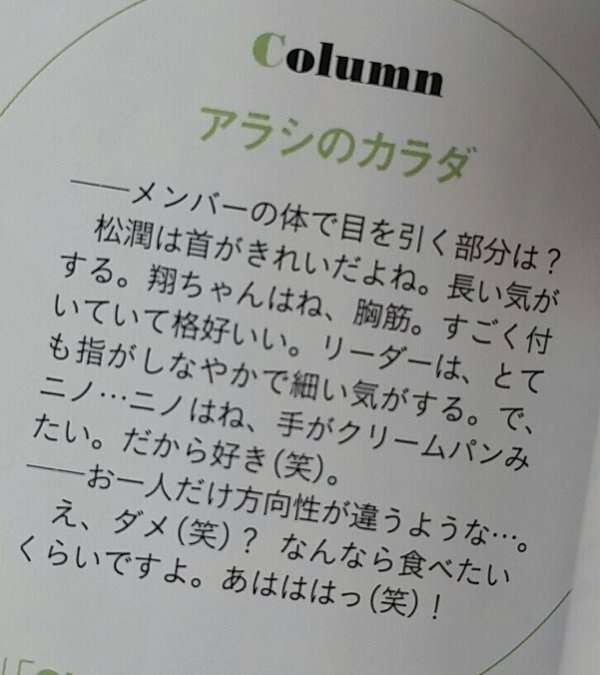 Column
アラシのカラダ
――メンバーの体で目を引く部分は？
松潤は首がきれいだよね。長い気が
する。翔ちゃんはね、胸筋。すごく付
いていて格好いい。リーダーは、とて
も指がしなやかで細い気がする。で、
ニノ…ニノはね、手がクリームパンみ
たい。だから好き(笑)。
――お一人だけ方向性が違うような…。
え、ダメ(笑)？ なんなら食べたい
くらいですよ。あはははっ(笑)！